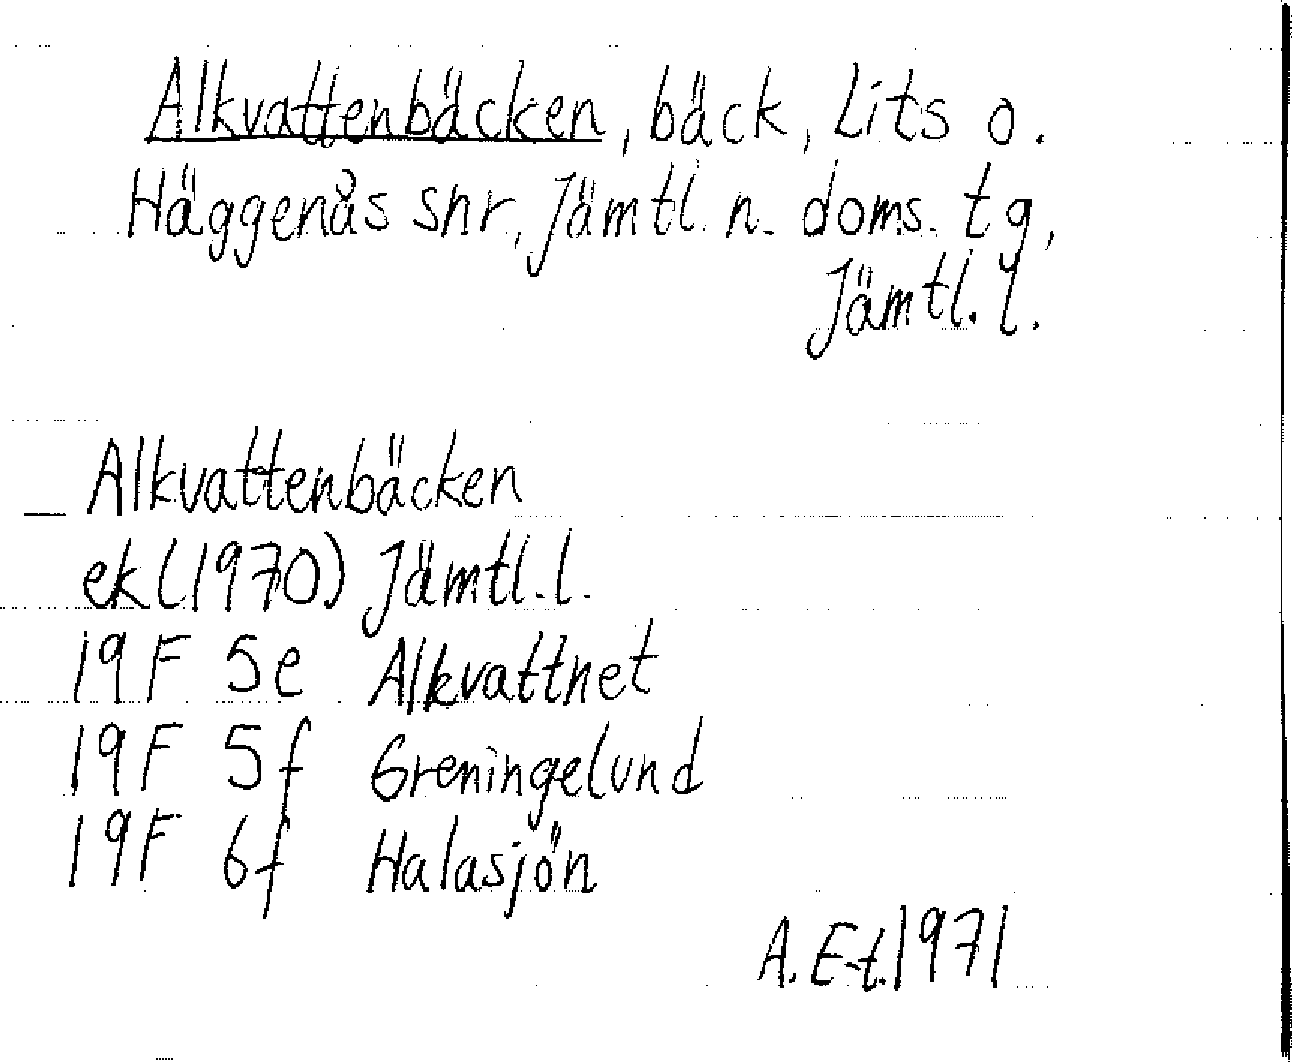 Alkvattenbäcken, bäck, Lits o.
Häggenås snr, Jämtl. n. doms. tg,
Jämtl. l.
_ Alkvattenbäcken
ek (1970) Jämtl. l.
19F 5e Alkvattnet
19F 5f Greningelund
19F 6f Halasjön
A. E-t. 1971